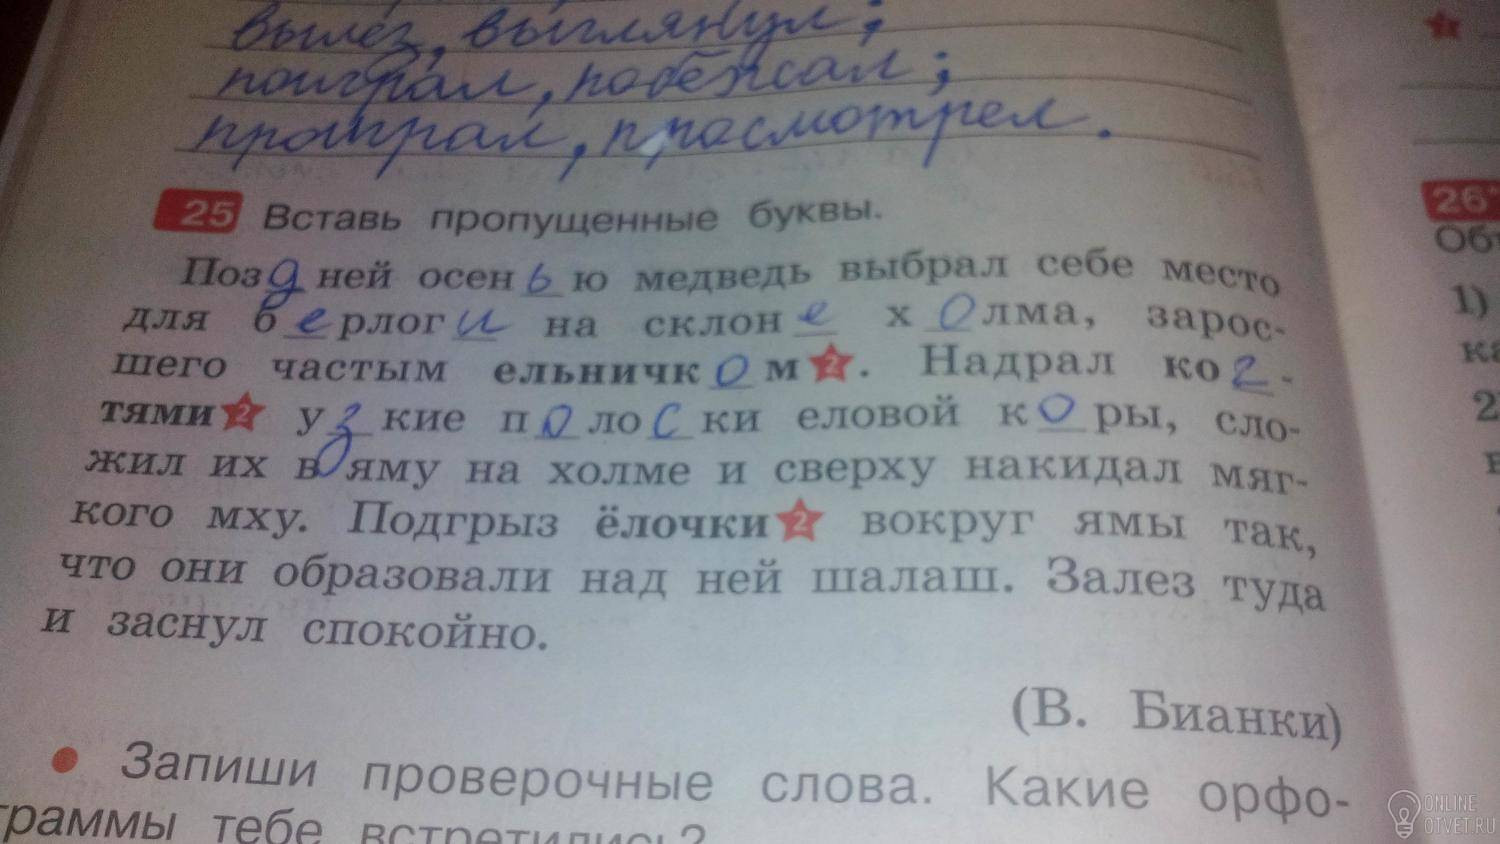 вылез, выглянул;
поиграл, побежал;
проиграл, просмотрел.
25 Вставь пропущенные буквы.
Поздней осенью медведь выбрал себе место
для берлоги на склоне холма, зарос-
шего частым ельничком 2. Надрал ког-
тями 2 узкие полоски еловой коры, сло-
жил их в яму на холме и сверху накидал мяг-
кого мху. Подгрыз ёлочки 2 вокруг ямы так,
что они образовали над ней шалаш. Залез туда
и заснул спокойно.
(В. Бианки)
• Запиши проверочные слова. Какие орфо-
граммы тебе встретились?
26
Об
1)
ка
2)
ONLINE
OTVET.RU